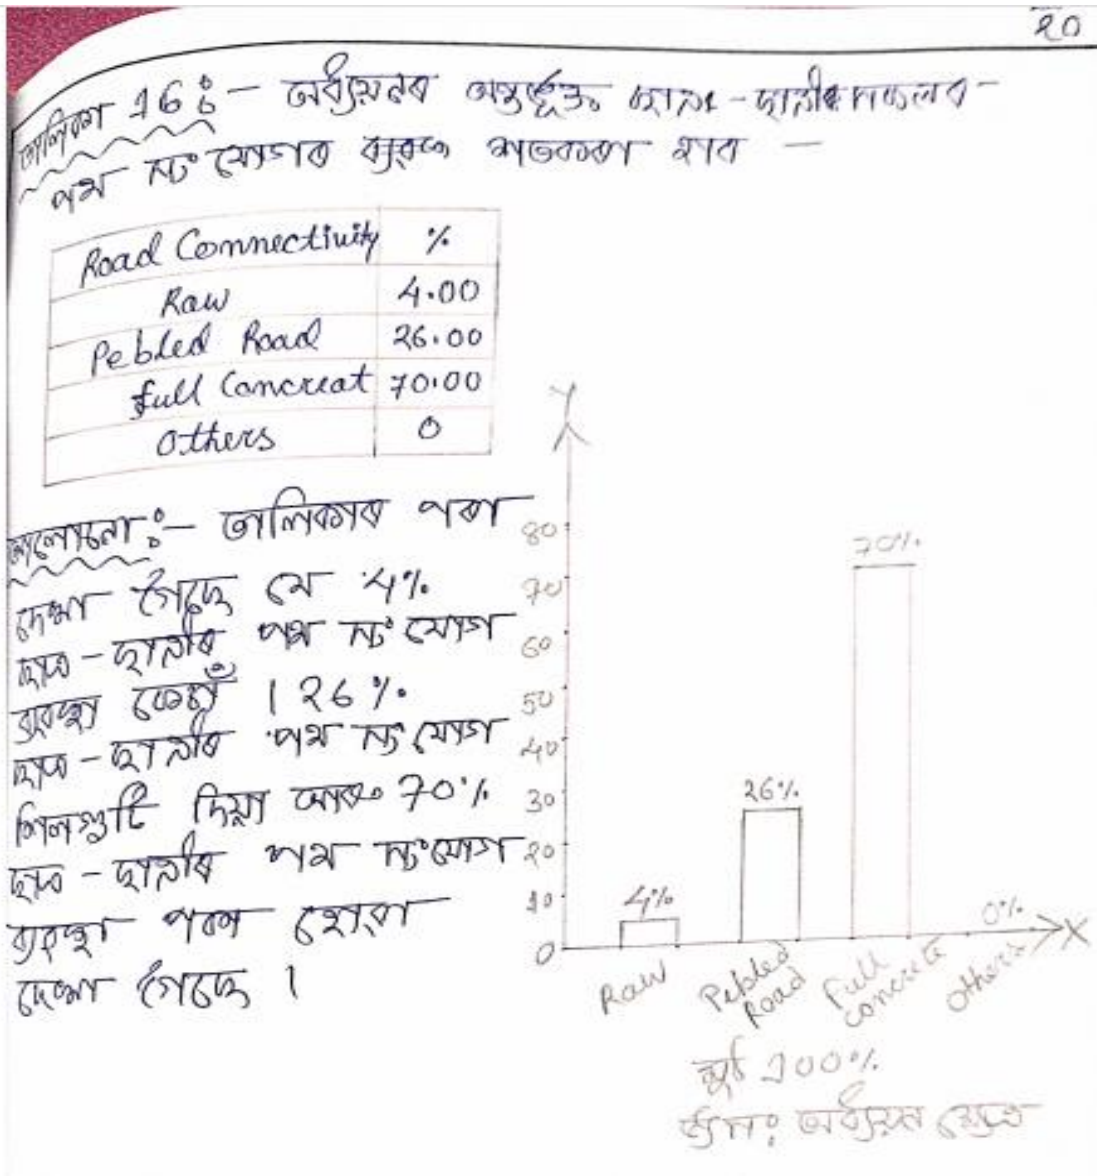 ২0
তালিকা 16 ঃ- অধ্যয়নৰ অন্তৰ্ভুক্ত ছাত্ৰ-ছাত্ৰীসকলৰ
পথ সংযোগৰ শতকৰা হাৰ -
Road Connectivity %
Raw 4.00
Pebled Road 26.00
full Concreat 70.00
Others 0
আলোচনা ঃ- তালিকাৰ পৰা
দেখা গৈছে যে 4%
ছাত্ৰ-ছাত্ৰীৰ পথ সংযোগ
ব্যৱস্থা কেচাঁ। 26%
ছাত্ৰ-ছাত্ৰীৰ পথ সংযোগ
শিলগুটি দিয়া আৰু 70%
ছাত্ৰ-ছাত্ৰীৰ পথ সংযোগ
ব্যৱস্থা পকা হোৱা
দেখা গৈছে।
Y
80
70
60
50
40
30
20
10
0
4%
26%
70%
0%
X
Raw
Pebled Road
Full Concrete
Others
100%
অধ্যয়ন ক্ষেত্ৰ